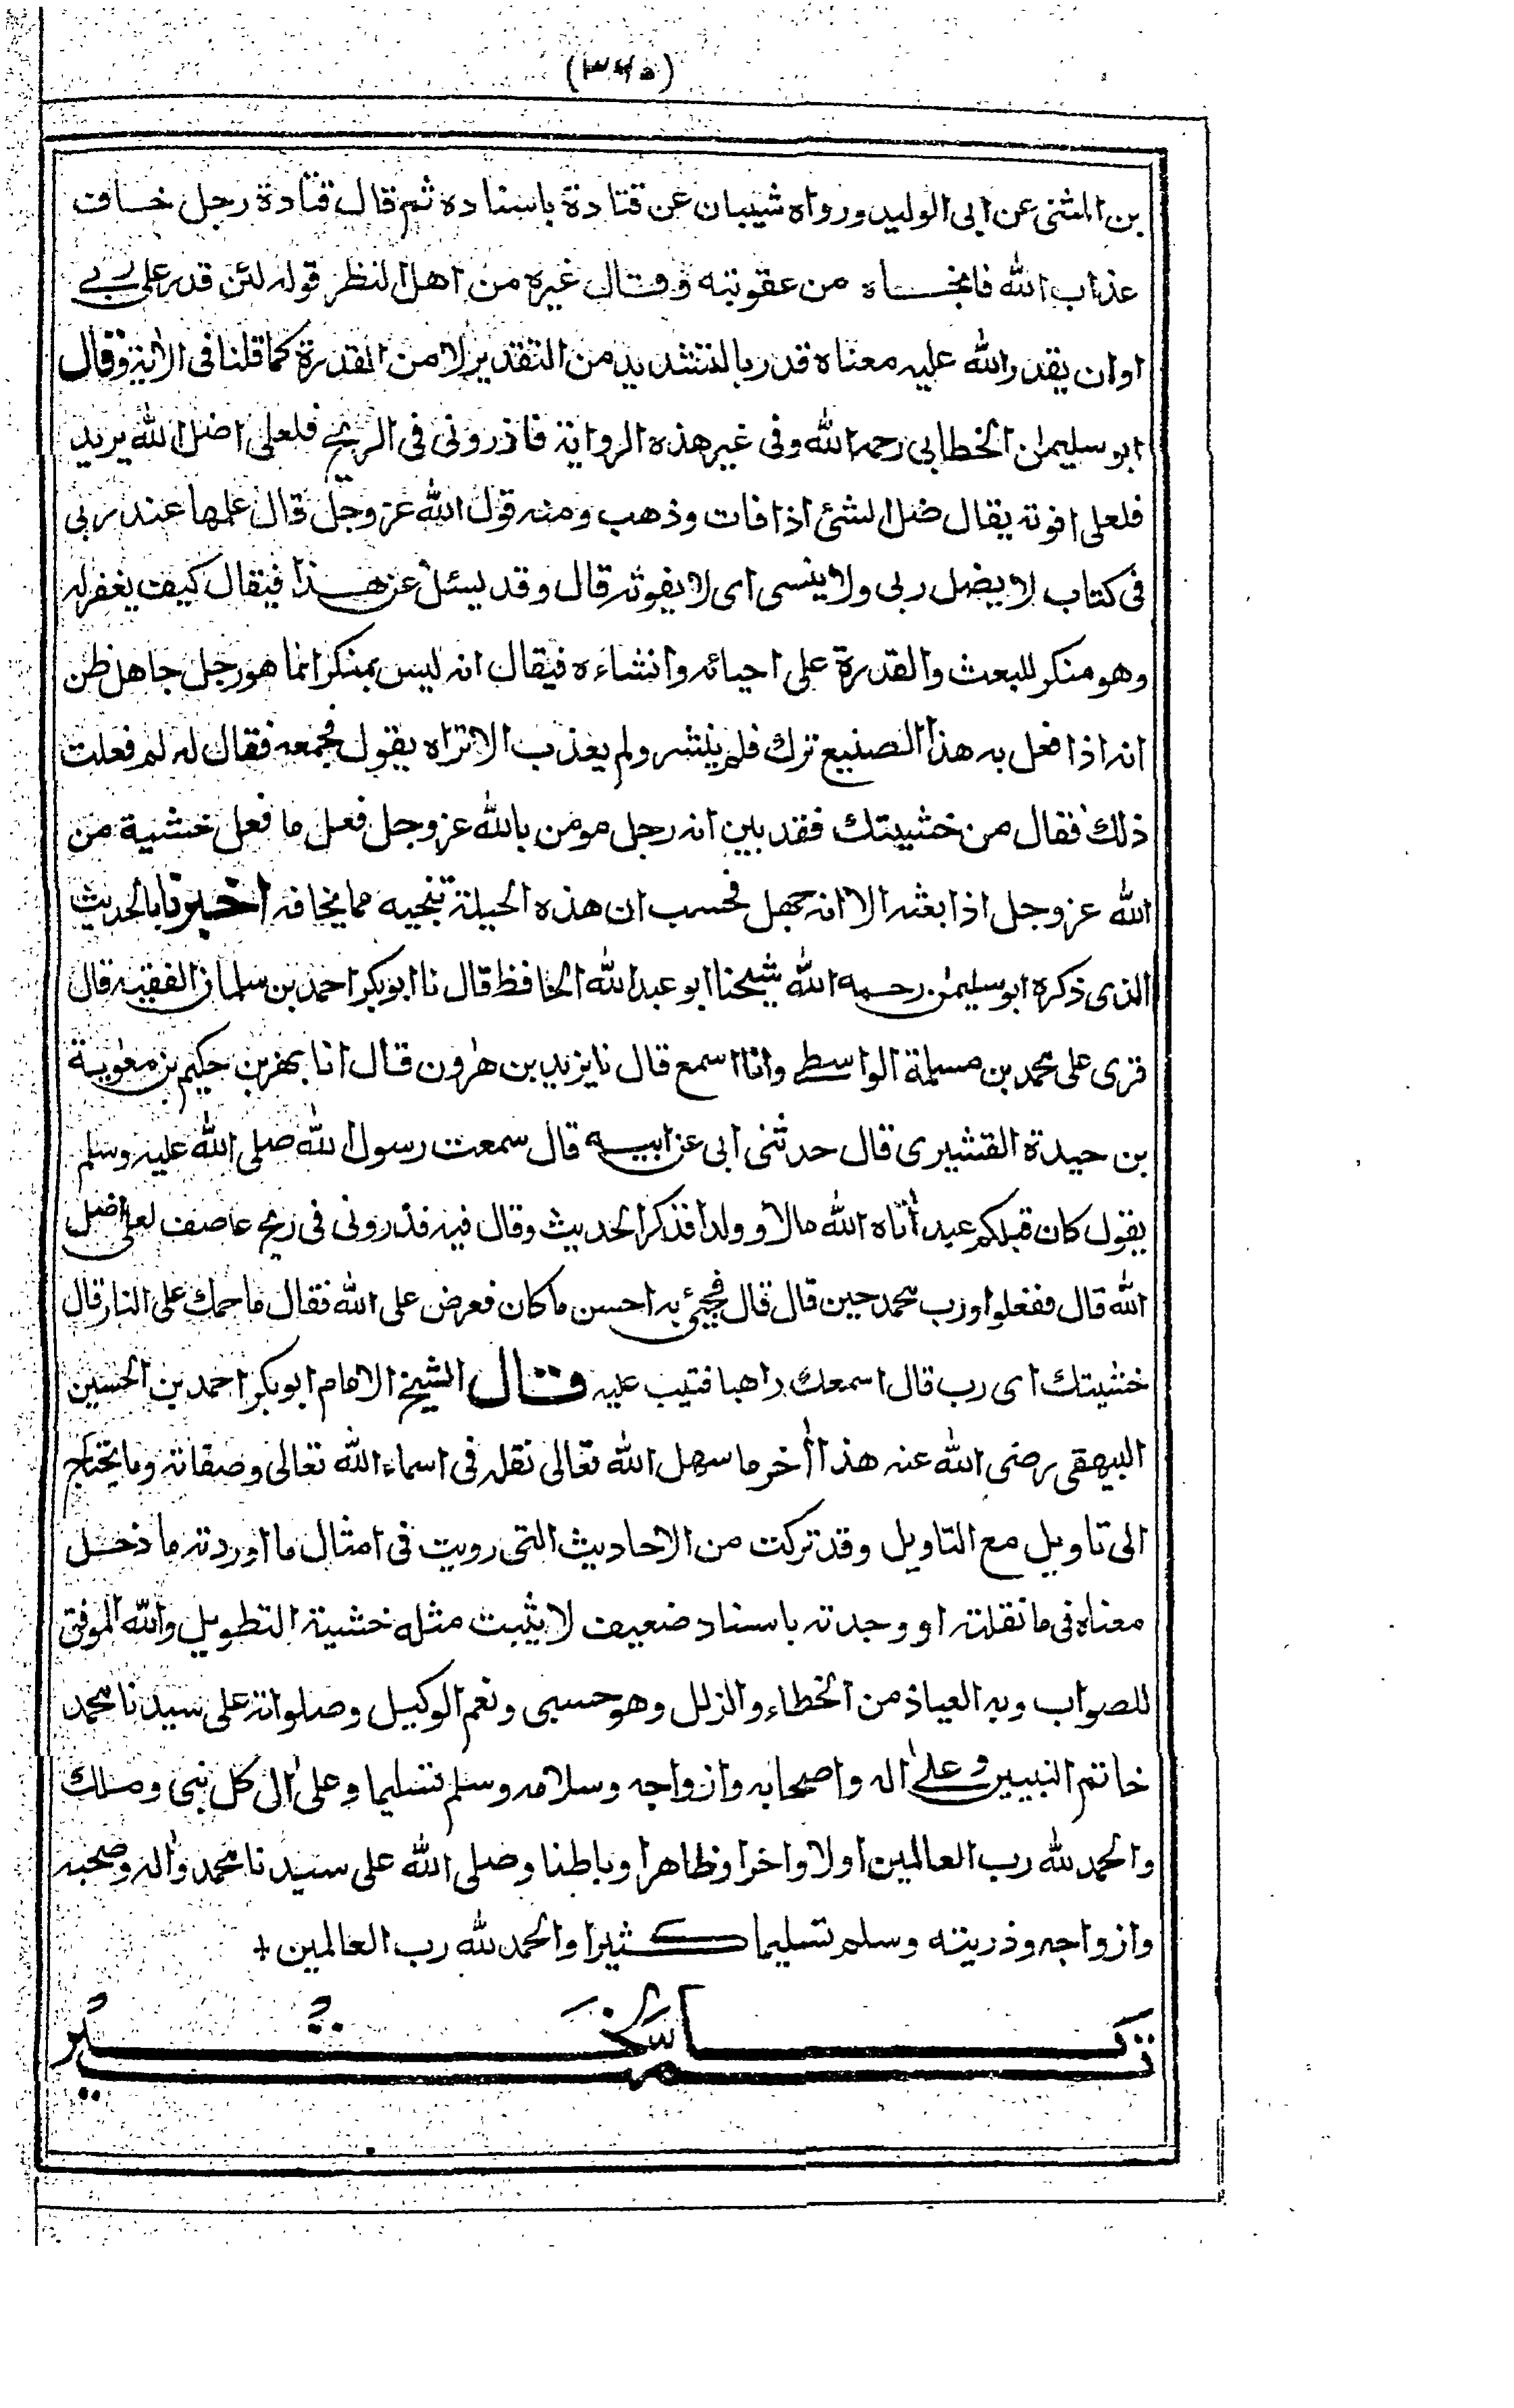 (٣٦٥)
بن المثنى عن ابى الوليد ورواه شيبان عن قتادة باسناده ثم قال قتادة رجل خاف
عذاب الله فانجاه من عقوبته وقال غيره من اهل النظر قوله لئن قدر على ربى
او ان يقدر الله عليه معناه قدر بالتشديد من التقدير لا من القدرة كما قلنا فى الاية وقال
ابو سليمان الخطابى رحمه الله وفى غير هذه الرواية فاذرونى فى الريح فلعلى اضل الله يريد
فلعلى افوته يقال ضل الشئ اذا فات وذهب ومنه قول الله عز وجل قال علمها عند ربى
فى كتاب لا يضل ربى ولا ينسى اى لا يفوته قال وقد يسئل عن هذا فيقال كيف يغفر له
وهو منكر للبعث والقدرة على احيائه وانشاءه فيقال انه ليس بمنكر انما هو رجل جاهل ظن
انه اذا فعل به هذا الصنيع ترك فلم ينشر ولم يعذب الا تراه يقول فجمعه فقال له لم فعلت
ذلك فقال من خشيتك فقد بين انه رجل مومن بالله عز وجل فعل ما فعل خشية من
الله عز وجل اذا بعثه الا انه جهل فحسب ان هذه الحيلة تنجيه مما يخافه اخبرنا بالحديث
الذى ذكره ابو سليمٰن رحمه الله شيخنا ابو عبد الله الحافظ قال نا ابو بكر احمد بن سلمان الفقيه قال
قرى على محمد بن مسلمة الواسطى وانا اسمع قال نا يزيد بن هٰرون قال انا بهز بن حكيم بن معٰوية
بن حيدة القشيرى قال حدثنى ابى عن ابيه قال سمعت رسول الله صلى الله عليه وسلم
يقول كان قبلكم عبد أتاه الله مالا و ولدا فذكر الحديث وقال فيه فذرونى فى ريح عاصف لعلى اضل
الله قال ففعلوا ورب محمد حين قال قال فجيئ به احسن ما كان فعرض على الله فقال ما حملك على النار قال
خشيتك اى رب قال اسمعك راهبا فتيب عليه قال الشيخ الامام ابو بكر احمد بن الحسين
البيهقى رضى الله عنه هذا أخر ما سهل الله تعالى نقله فى اسماء الله تعالى وصفاته وما يحتاج
الى تاويل مع التاويل وقد تركت من الاحاديث التى رويت فى امثال ما اوردته ما دخل
معناه فى ما نقلته او وجدته باسناد ضعيف لا يثبت مثله خشية التطويل والله الموفق
للصواب وبه العياذ من الخطاء والزلل وهو حسبى ونعم الوكيل وصلواته على سيدنا محمد
خاتم النبيين وعلىٰ اله واصحابه وازواجه وسلامه وسلم تسليما وعلى أل كل نبى وملك
والحمد لله رب العالمين اولا واخرا وظاهرا وباطنا وصلى الله على سيدنا محمد واله وصحبه
وازواجه وذريته وسلم تسليما كثيرا والحمد لله رب العالمين +